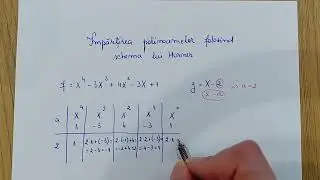 Împărțirea polinoamelor folosind
schema lui Horner
f = x⁴ - 3x³ + 4x² - 3x + 1
g = x - 2
x - a
a | x⁴ | x³ | x² | x¹ | x⁰
1 | -3 | 4 | -3 | 1
2 | 1 | 2·1+(-3) | 2·(-1)+4 | 2·2+(-3)
= 2-3=-1 | = -2+4=2 | = 4-3=1